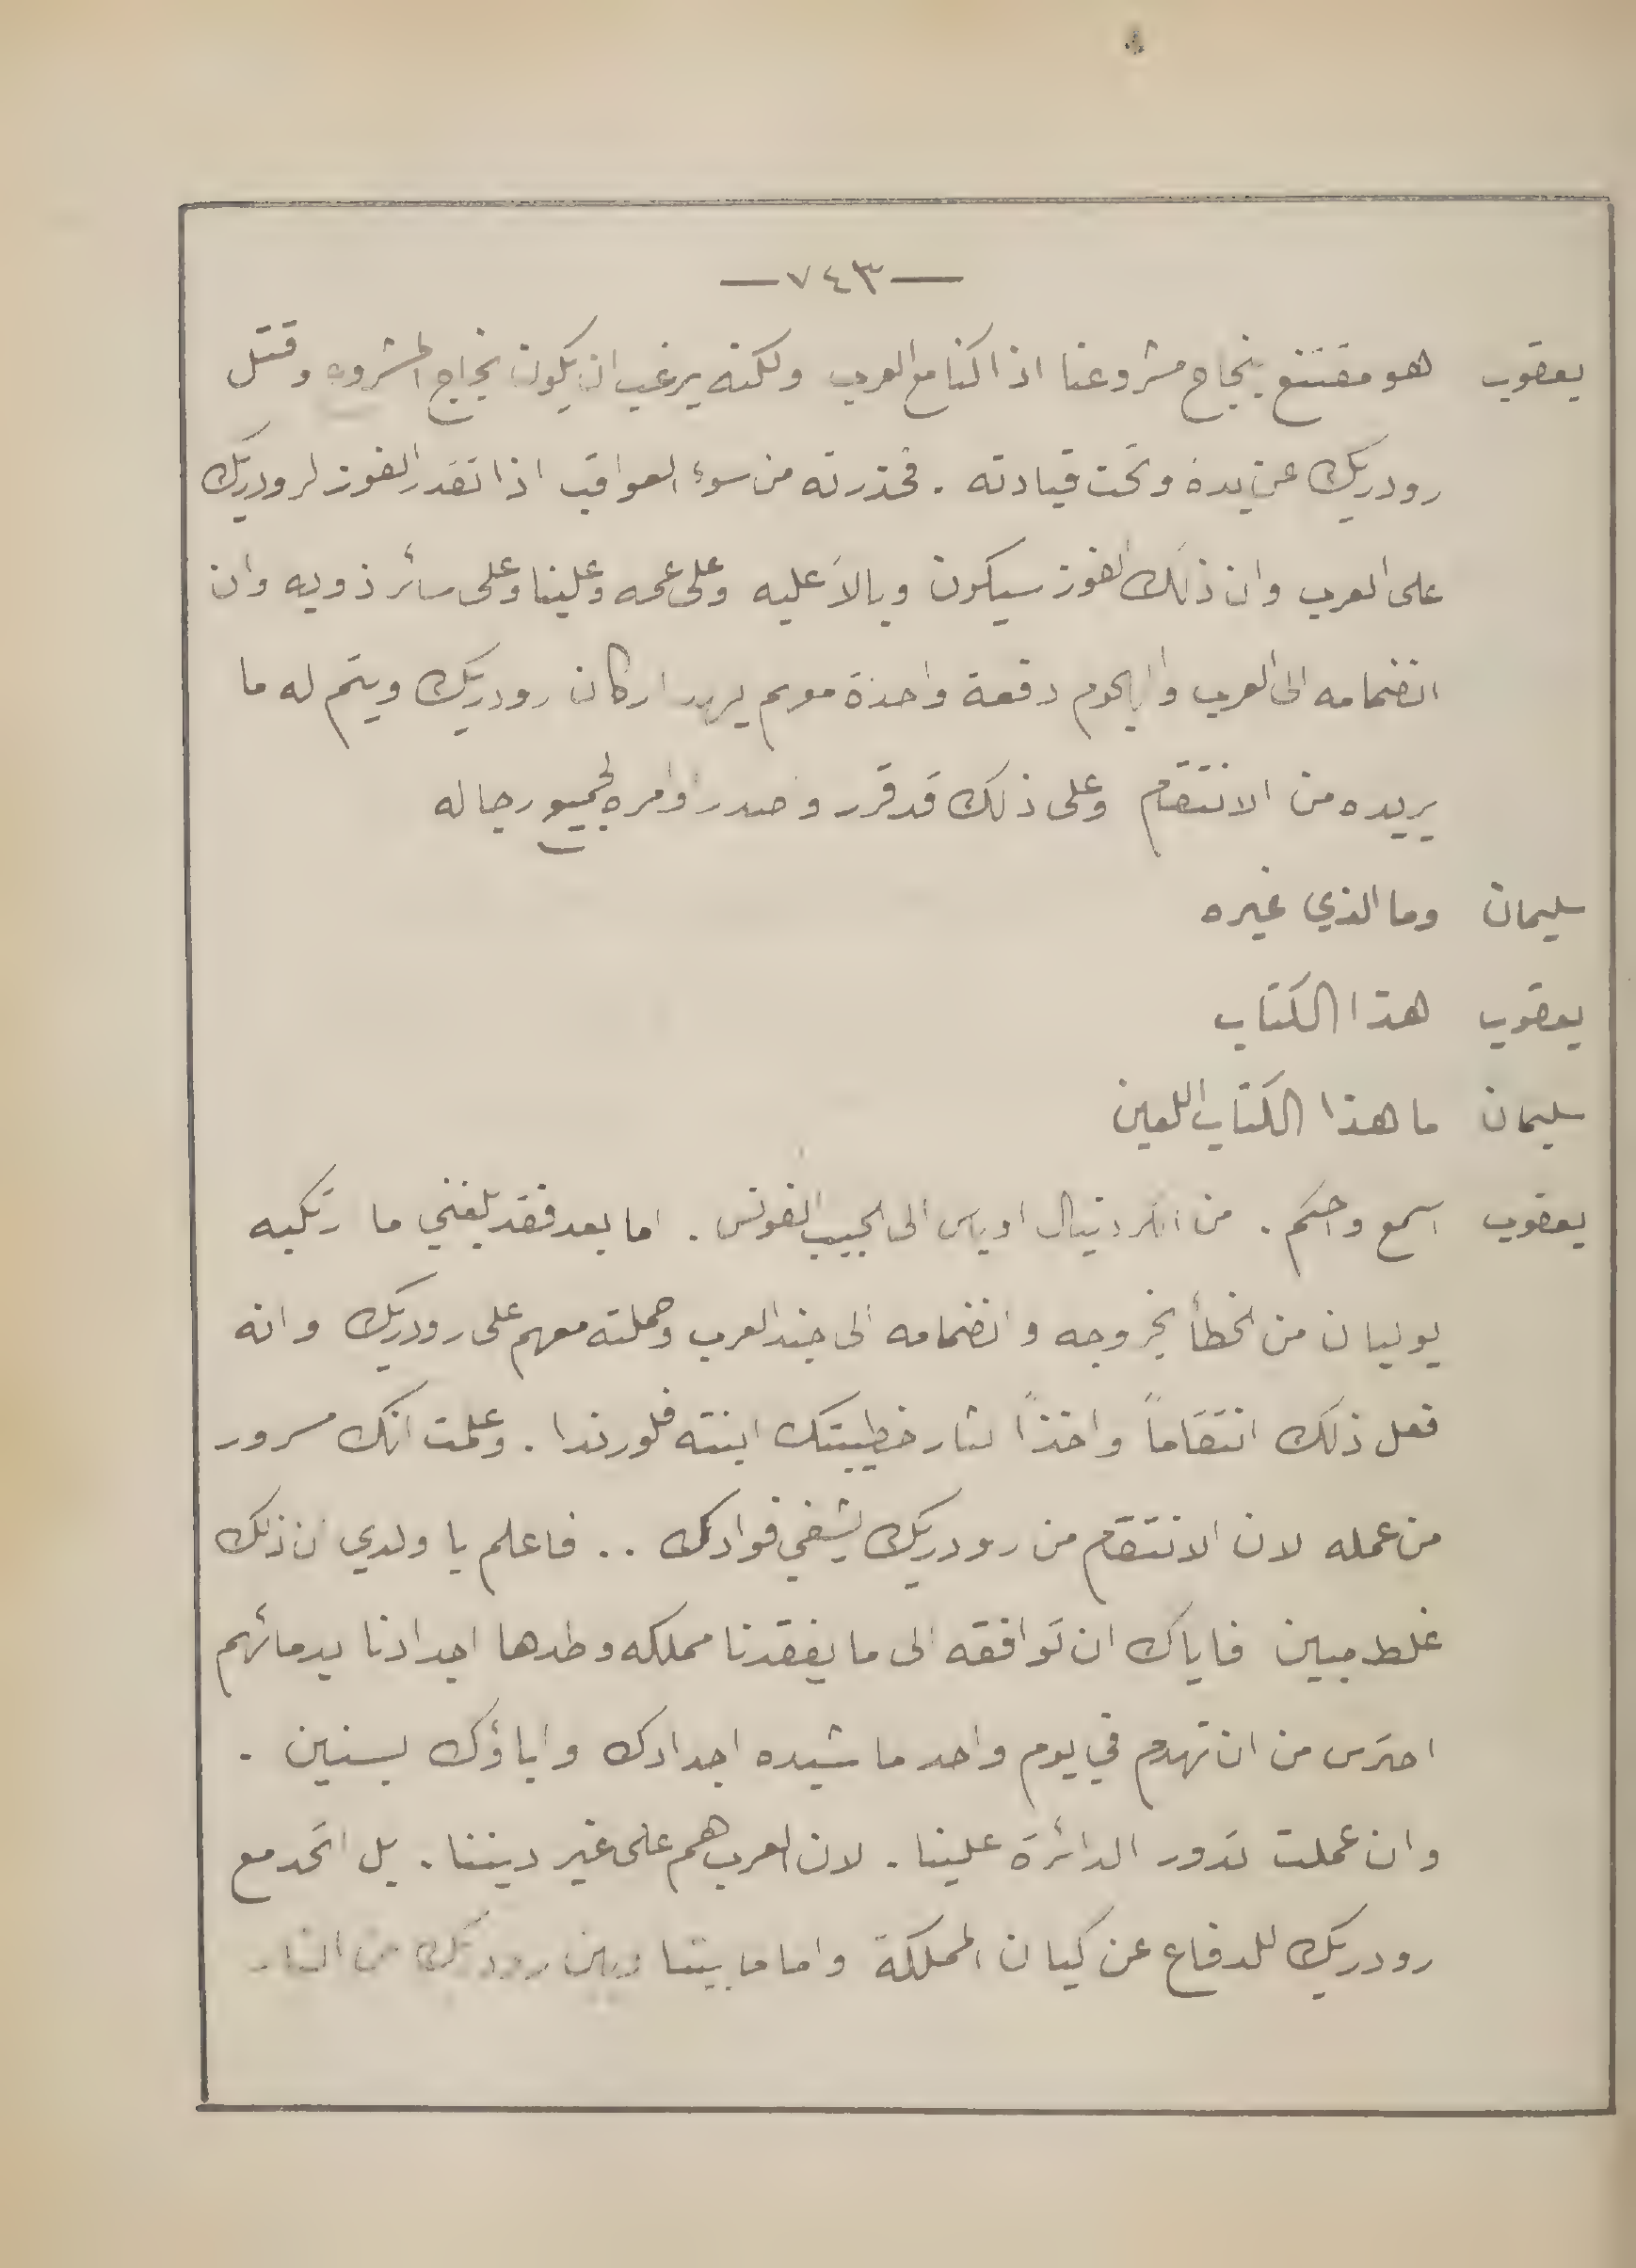 —٧٤٣—
يعقوب هو مقتنع بنجاح مشروعنا اذا كنا مع العرب ولكنه يرغب ان يكون نجاح المشروع وقتل
رودريك عن يده وتحت قيادته . فحذرته من سوء العواقب اذا تقدر الفوز لرودريك
على العرب وان ذلك الفوز سيكون وبالاً عليه وعلى عمه وعلينا وعلى سائر ذويه وان
انضمامه الى العرب والهجوم دفعة واحدة معهم يهدد اركان رودريك ويتم له ما
يريده من الانتقام وعلى ذلك قد قرر وصدر اوامره لجميع رجاله
سليمان وما الذي غيره
يعقوب هذا الكتاب
سليمان ما هذا الكتاب اللعين
يعقوب اسمع واحكم . من الكردينال اوباس الى الحبيب الفونس . اما بعد فقد بلغني ما ارتكبه
يوليان من الخطأ بخروجه وانضمامه الى جند العرب وحملته معهم على رودريك وانه
فعل ذلك انتقاماً واخذاً لثار خطيبتك ابنته فلورندا . وعلمت انك مسرور
من عمله لان الانتقام من رودريك يشفي فوادك .. فاعلم يا ولدي ان ذلك
غلط مبين فاياك ان توافقه الى ما يفقدنا مملكه وطدها اجدادنا بدمائهم
احترس من ان تهدم في يوم واحد ما شيده اجدادك واباؤك بسنين .
وان عملت تدور الدائرة علينا . لان العرب هم على غير ديننا . بل اتحد مع
رودريك للدفاع عن كيان المملكة واما ما بيننا وبين رودريك من الثار